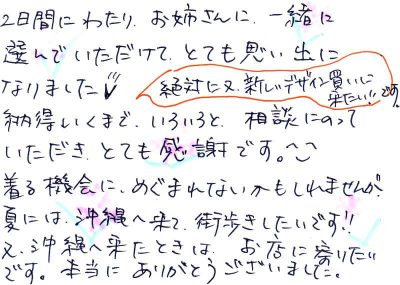 2日間にわたり、お姉さんに、一緒に
選んでいただけて、とても思い出に
なりました!!
絶対に又、新しいデザイン買いに
来たい!!です。
納得いくまで、いろいろと、相談にのって
いただき、とても感謝です。
着る機会に、めぐまれないかもしれませんが、
夏には、沖縄へ来て、街歩きしたいです!!
又、沖縄へ来たときは、お店に寄りたい
です。本当にありがとうございました。